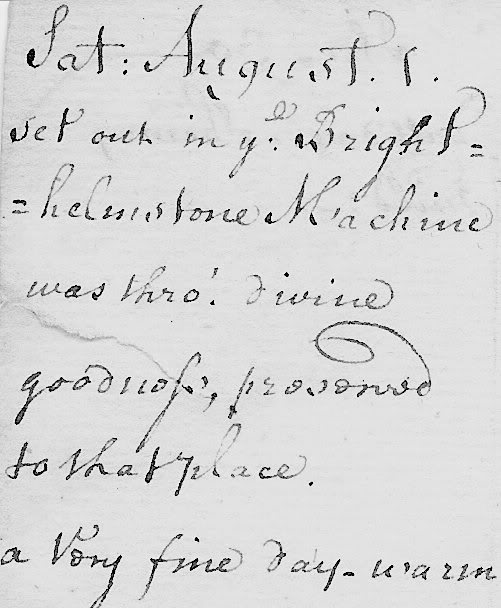 Sat: August. 1.
set out in yͤ. Bright=
=helmstone Machine
was thro'. divine
goodneſs, preserved
to that place.
a Very fine day - warm